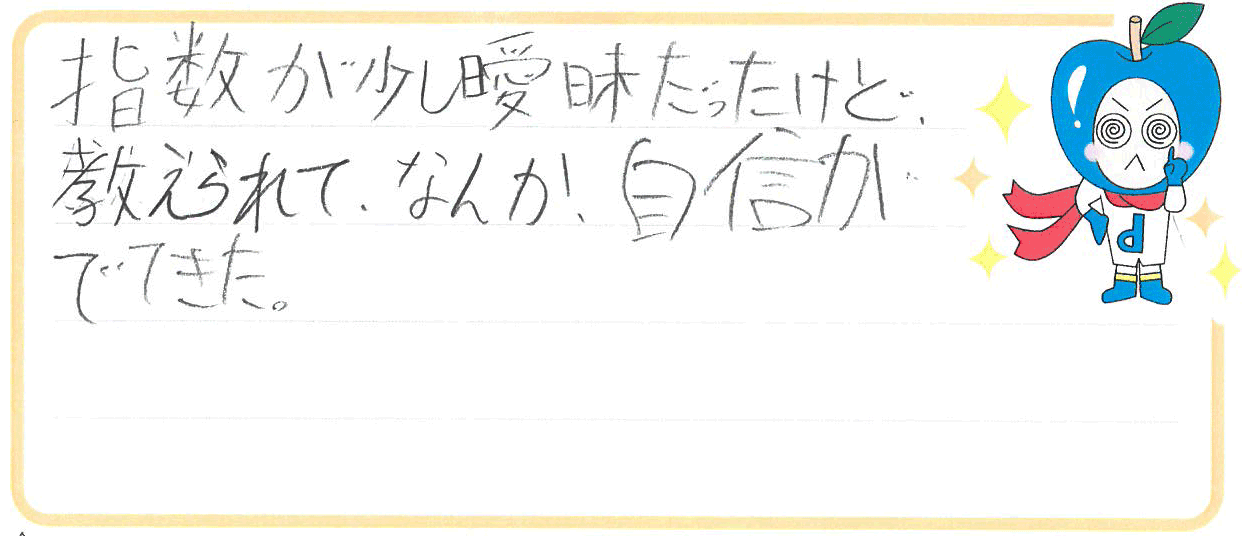 指数が少し曖昧だったけど、
教えられて、なんか！、自信が
でてきた。
d